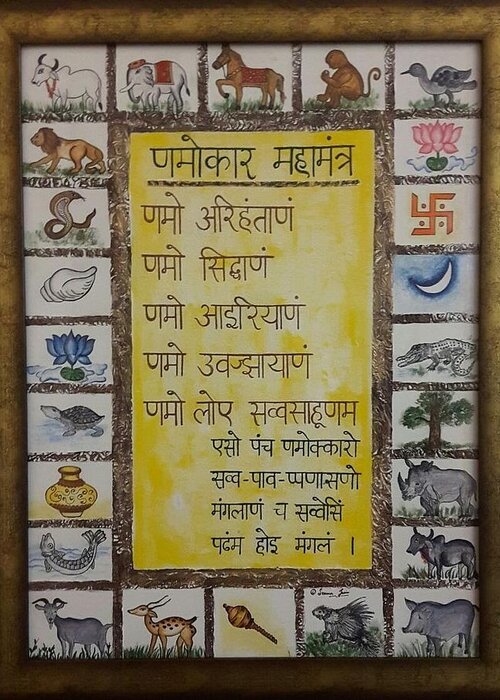 णमोकार महामंत्र
णमो अरिहंताणं
णमो सिद्धाणं
णमो आइरियाणं
णमो उवज्झायाणं
णमो लोए सव्वसाहूणम
एसो पंच णमोक्कारो
सव्व-पाव-प्पणासणो
मंगलाणं च सव्वेसिं
पढंम होइ मंगलं ।